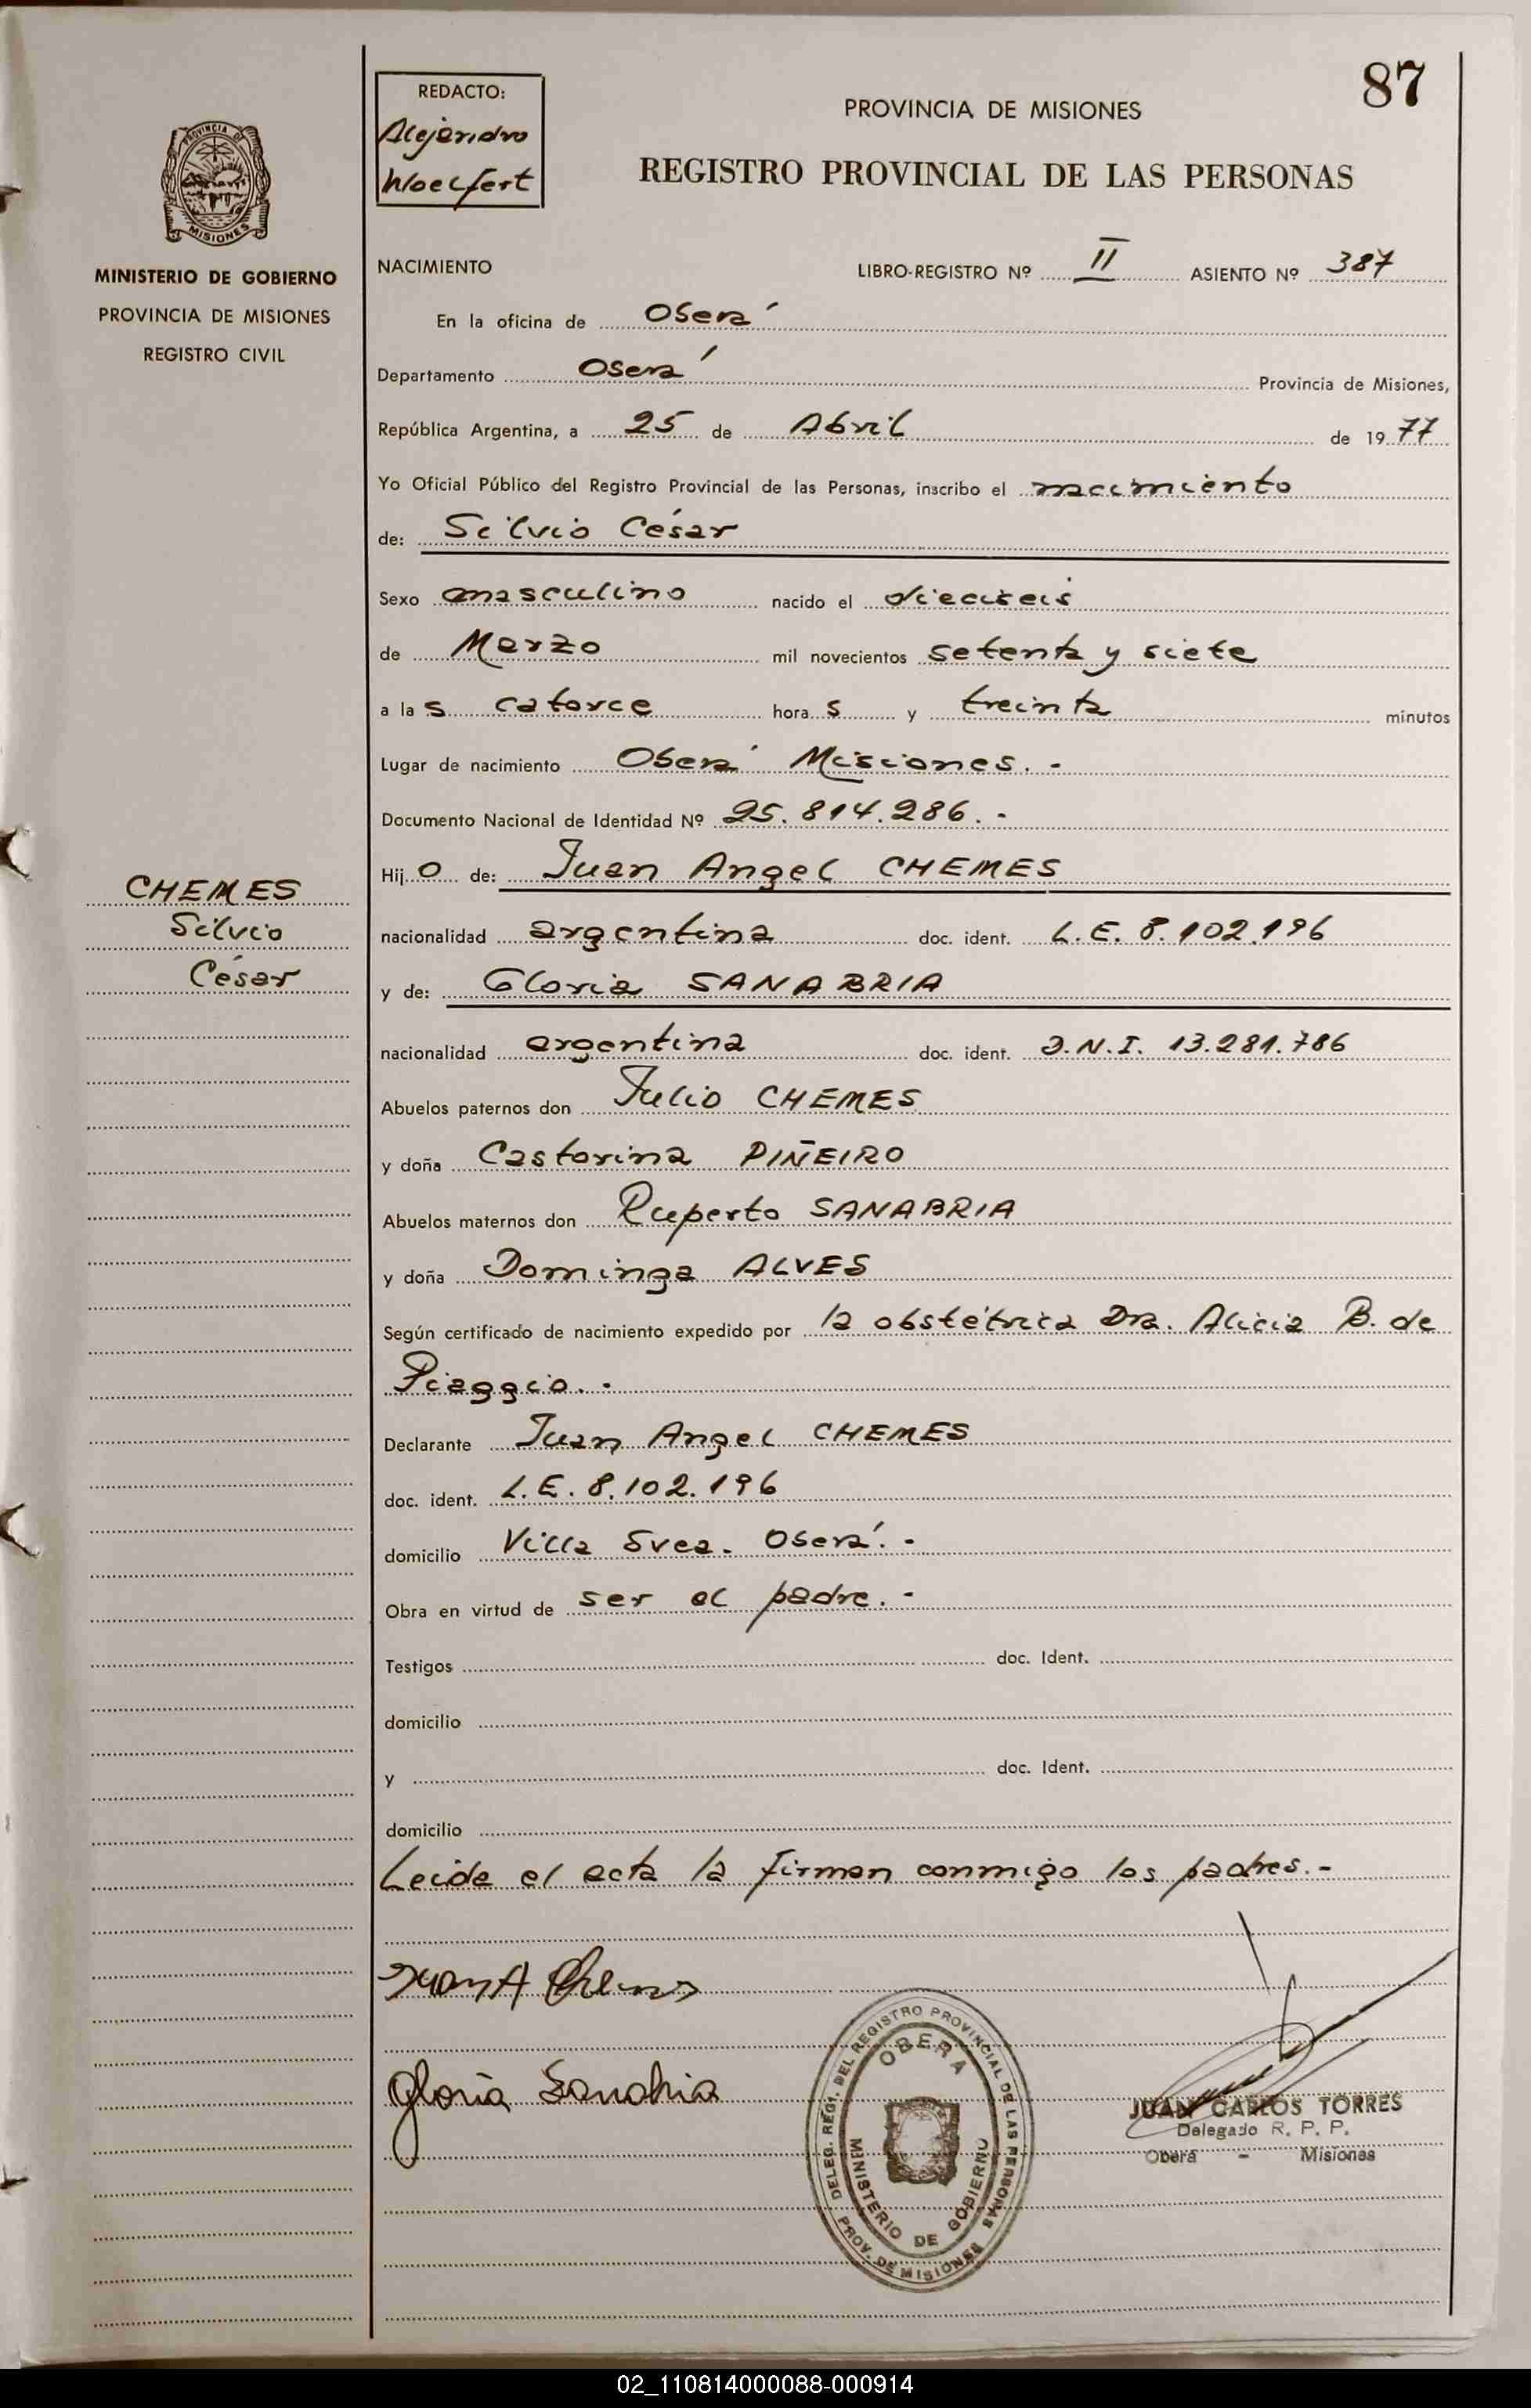 87
REDACTO:
Alejandro
Woelfert
PROVINCIA DE MISIONES
REGISTRO PROVINCIAL DE LAS PERSONAS
PROVINCIA DE
MISIONES
MINISTERIO DE GOBIERNO
PROVINCIA DE MISIONES
REGISTRO CIVIL
NACIMIENTO LIBRO-REGISTRO Nº II ASIENTO Nº 387
En la oficina de Oberá
Departamento Oberá Provincia de Misiones,
República Argentina, a 25 de Abril de 1977
Yo Oficial Público del Registro Provincial de las Personas, inscribo el nacimiento
de: Silvio César
Sexo masculino nacido el dieciseis
de Marzo mil novecientos setenta y siete
a las catorce horas y treinta minutos
Lugar de nacimiento Oberá Misiones. -
Documento Nacional de Identidad Nº 25.814.286. -
Hijo de: Juan Angel CHEMES
CHEMES
Silvio
César
nacionalidad argentina doc. ident. L.E. 8.102.196
y de: Gloria SANABRIA
nacionalidad argentina doc. ident. D.N.I. 13.281.786
Abuelos paternos don Julio CHEMES
y doña Castorina PIÑEIRO
Abuelos maternos don Ruperto SANABRIA
y doña Dominga ALVES
Según certificado de nacimiento expedido por la obstétrica Dra. Alicia B. de
Piaggio. -
Declarante Juan Angel CHEMES
doc. ident. L.E. 8.102.196
domicilio Villa Svea. Oberá. -
Obra en virtud de ser el padre. -
Testigos doc. Ident.
domicilio
y doc. Ident.
domicilio
Leida el acta la firman conmigo los padres. -
Juan A Chemes
Gloria Sanabria
DELEG. REGI. DEL REGISTRO PROVINCIAL DE LAS PERSONAS
OBERA
MINISTERIO DE GOBIERNO
PROV. DE MISIONES
JUAN CARLOS TORRES
Delegado R. P. P.
Oberá - Misiones
02_110814000088-000914